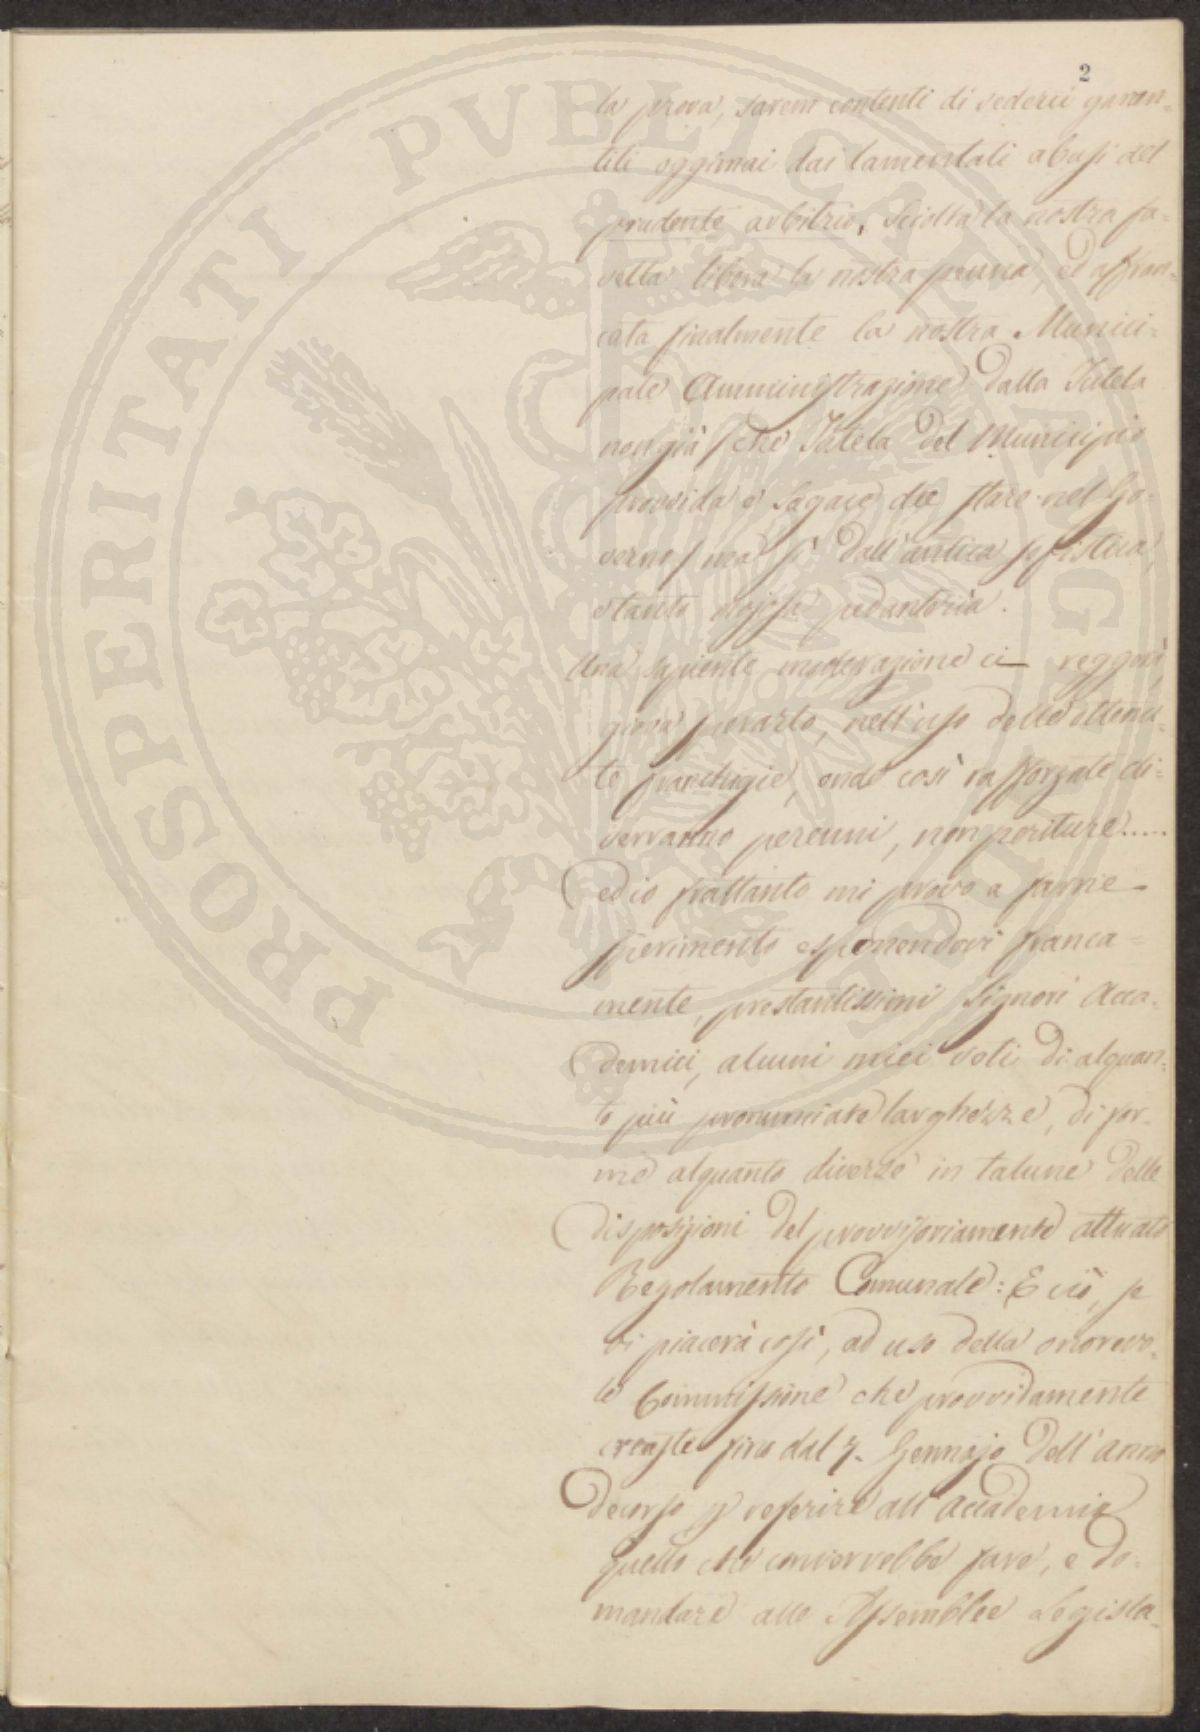 2
la prova, sarem contenti di vederci garan=
titi oggimai dai lamentati abusi del
prudente arbitrio, sciolta la nostra fa=
vella libera la nostra penna, ed affran=
cata finalmente la nostra Munici=
pale Amministrazione dalla Tutela
non già (che Tutela del Municipio
provvida e sagace dee stare nel Go=
verno) ma sì dall'antica sofistica,
e tanto nojosa pedanteria.
Una sapiente moderazione ci reggerà,
giova sperarlo, nell'uso delle ottenu=
te franchigie, onde così rafforzate di=
verranno perenni, non periture.....
ed io frattanto mi provo a farne
sperimento esponendovi franca=
mente, prestantissimi Signori Acca=
demici, alcuni miei voti di alquan=
to più pronunciate larghezze, di for=
me alquanto diverse in talune delle
disposizioni del provvisoriamente attuato
Regolamento Comunale: E ciò, se
vi piacerà così, ad uso della onorevo=
le Commissione che provvidamente
creaste fino dal 7. Gennajo dell'anno
decorso p referire all'Accademia
quello che converrebbe fare, e do=
mandare alle Assemblee Legisla=
PROSPERITATI PUBLICAE AUGENDAE